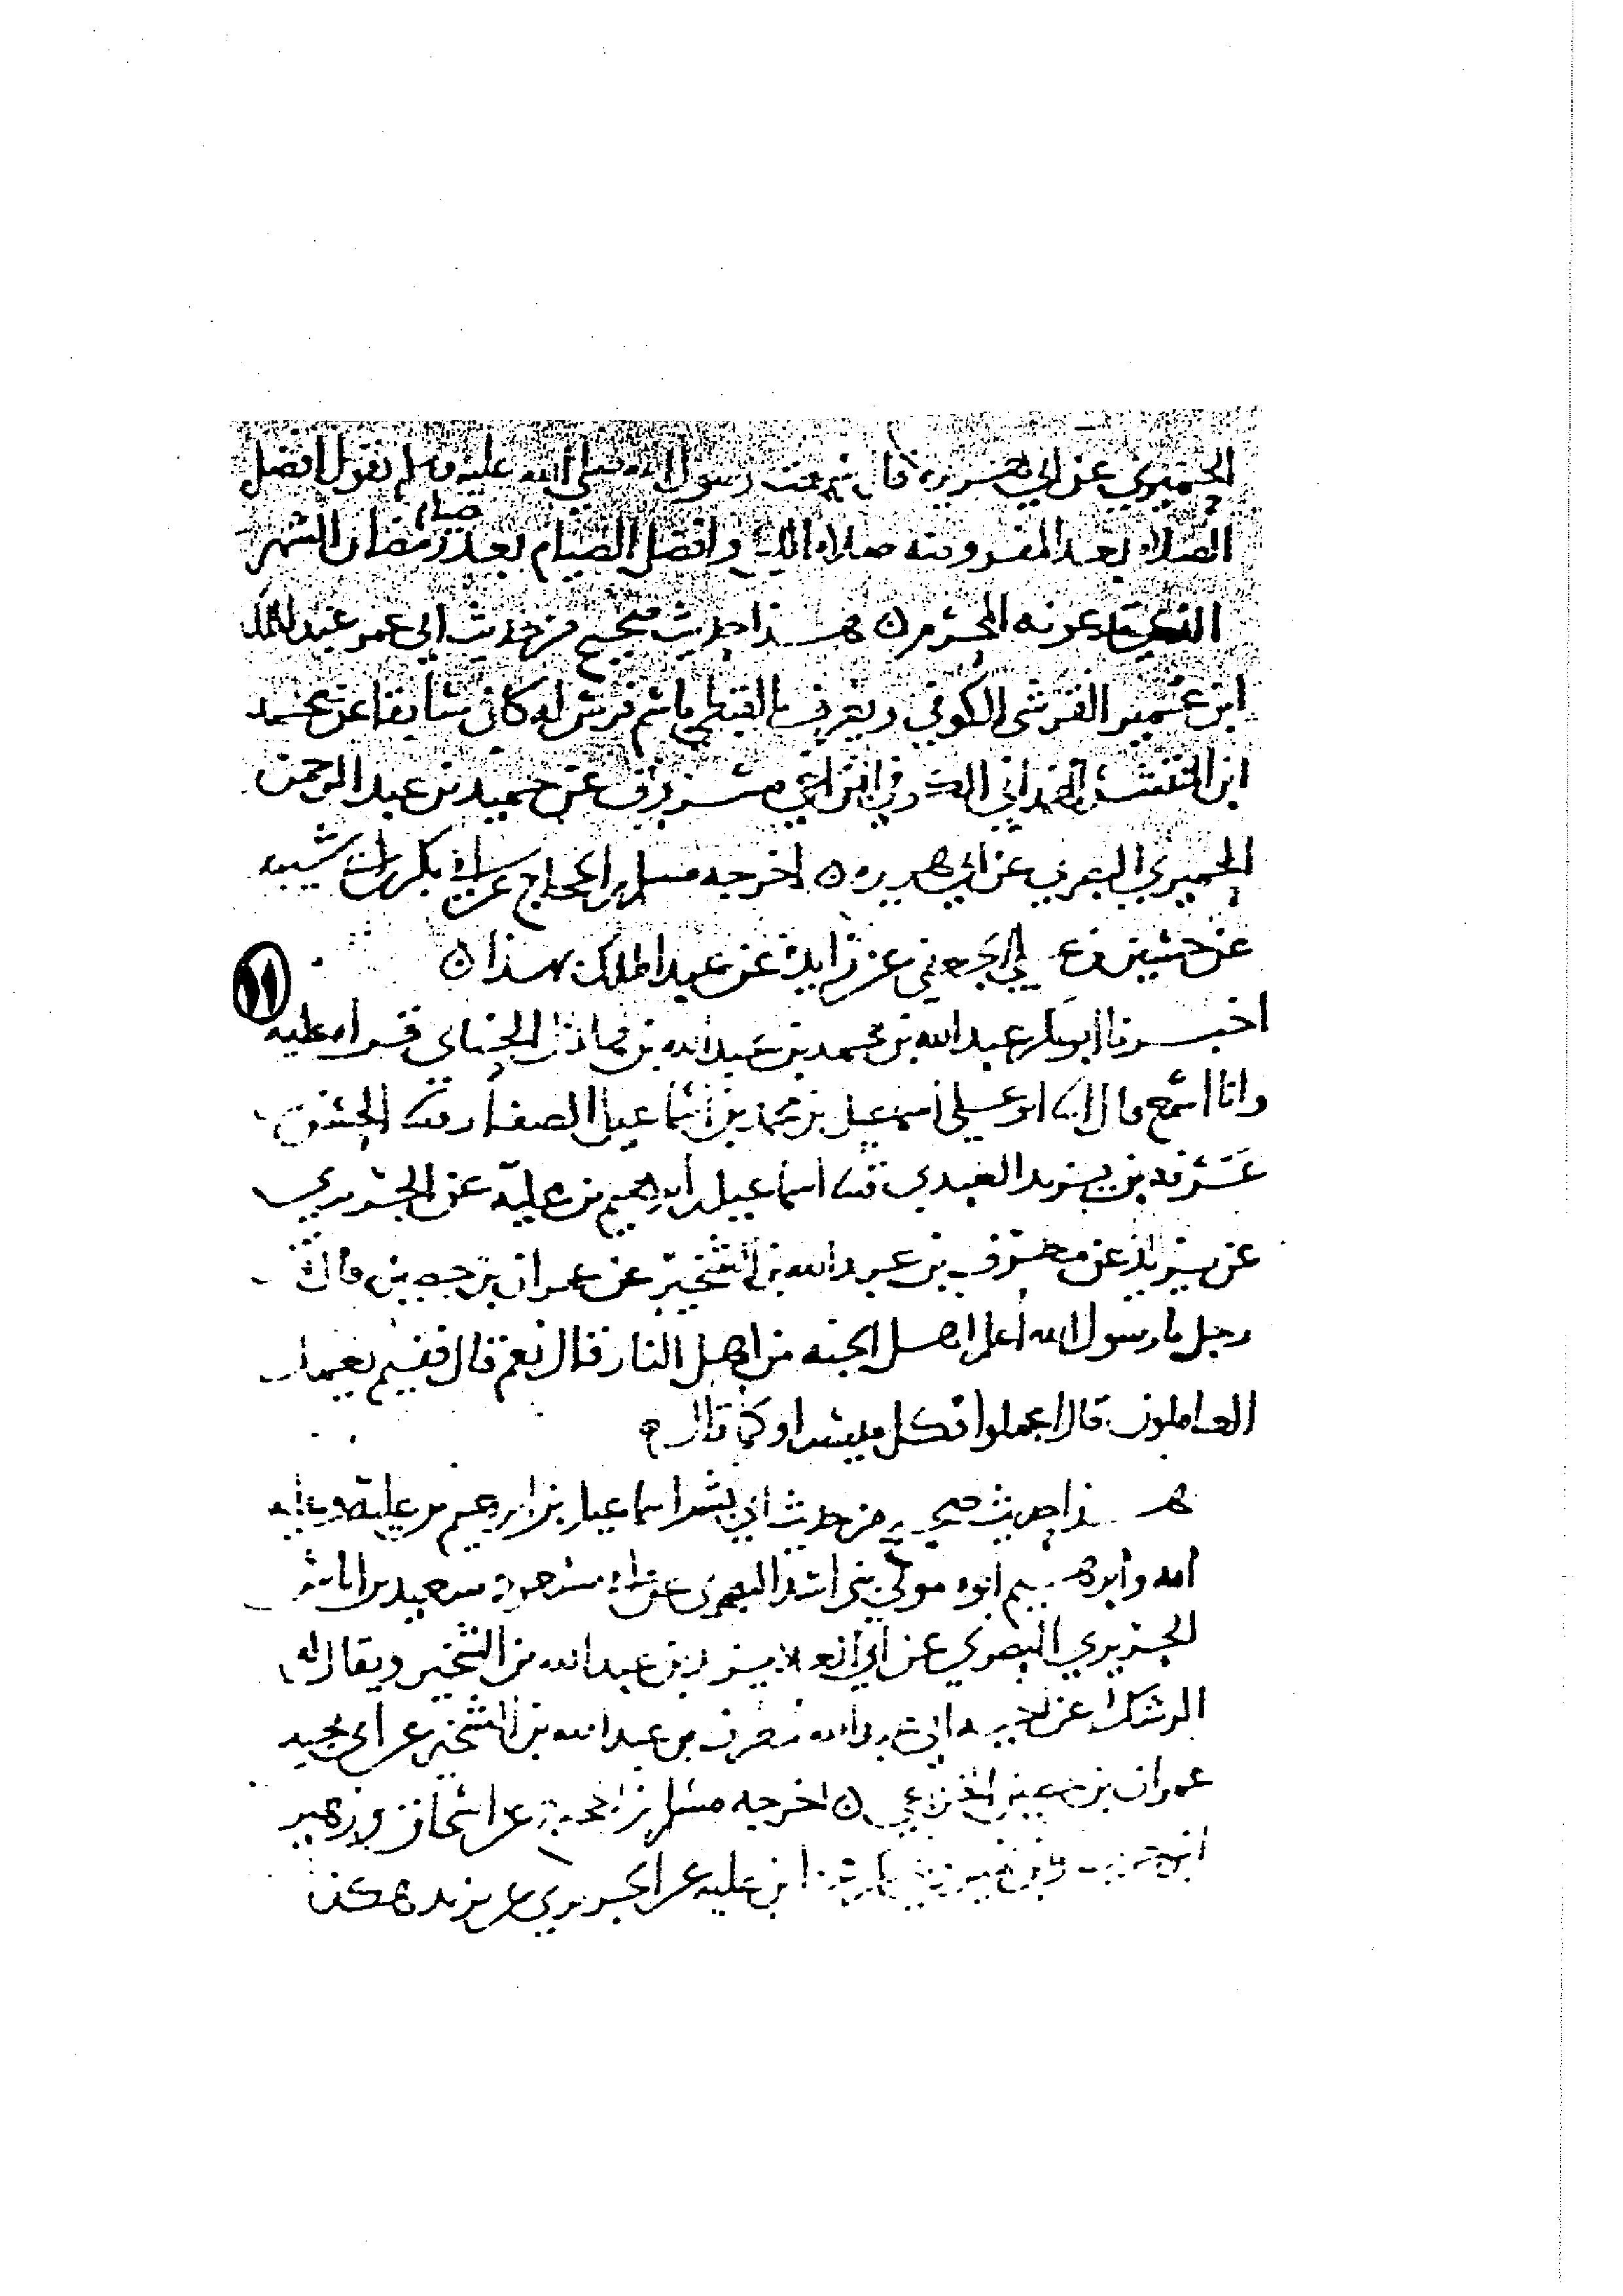 الحميري عن ابي هريرة قال سمعت رسول الله صلى الله عليه وسلم يقول افضل
صيام
الصلاه بعد المفروضه صلاه الليل وافضل الصيام بعد رمضان الشهر
الذي تدعونه المحرم ن هذا حديث صحيح من حديث ابي عمر عبد الملك
ابن عمير القرشي الكوفي ويعرف بالقبطي باسم فرس له كان سابقا عن محمد
ابن المنتشر الهمداني الكوفي ابن اخي مسروق عن حميد بن عبد الرحمن
الحميري البصري عن ابي هريره ن اخرجه مسلم بن الحجاج عن ابي بكر بن ابي شيبه
عن حسين بن علي الجعفي عن زايدة عن عبد الملك بهذا ن
اخبرنا ابو بكر عبد الله بن محمد بن عبد الله بن الحنايي قراه عليه
وانا اسمع قال ابنا ابو علي اسمعيل بن محمد بن اسماعيل الصفار ثنا الحسن
بن عرفه بن يزيد العبدي ثنا اسماعيل بن ابرهيم بن علية عن الجريري
عن يزيد عن مطرف بن عبد الله بن الشخير عن عمران بن حصين قال قال
رجل يا رسول الله أعلم اهل الجنه من اهل النار قال نعم قال ففيم يعمل
العاملون قال اعملوا فكل ميسر او كما قال ه
هذا حديث صحيح من حديث ابي بشر اسماعيل بن ابرهيم بن علية وعليه
امه وابرهيم ابوه مولى بني اسد البصري عن ابي مسعود سعيد بن اياس
الجريري البصري عن ابي العلا يزيد بن عبد الله بن الشخير ويقال له
الرشك عن اخيه ابي عبد الله مطرف بن عبد الله بن الشخير عن ابي نجيد
عمران بن حصين الخزاعي ن اخرجه مسلم بن الحجاج عن اسحاق وزهير
ابن حرب وابن نمير ابن عليه عن الجريري عن يزيد هكذا